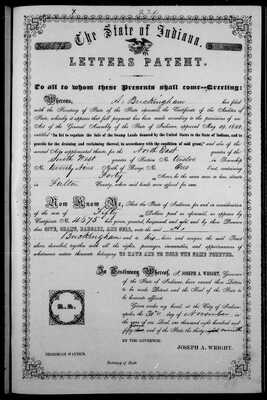 The State of Indiana.
LETTERS PATENT.
To all to whom these Presents shall come—Greeting:
Whereas, A. Buckingham has filed
with the Secretary of State of the State aforesaid, the Certificate of the Auditor of
State, whereby it appears that full payment has been made according to the provisions of an
Act of the General Assembly of the State of Indiana, approved May 29, 1852,
entitled "An Act to regulate the sale of the Swamp Lands donated by the United States to the State of Indiana, and to
provide for the draining and reclaiming thereof, in accordance with the condition of said grant," and also of the
several Acts supplemental thereto, for the North East quarter of the
South West quarter of Section No. in Township
No. North of Range No. One East, containing
Forty Acres, be the same more or less, situate in
Fulton County, when said lands were offered for sale.
Now Know Ye, That the State of Indiana, for and in consideration
of the sum of Fifty Dollars paid as aforesaid, as appears by
Certificate No. 4375 has given, granted, bargained and sold, and by these Presents
does GIVE, GRANT, BARGAIN, AND SELL, unto the said A.
Buckingham and to his heirs and assigns the said Tract
above described, together with all the rights, privileges, immunities, and appurtenances of
whatsoever nature thereunto belonging, TO HAVE AND TO HOLD THE SAME FOREVER.
In Testimony Whereof, I, JOSEPH A. WRIGHT, Governor
of the State of Indiana, have caused these Letters
to be made Patent and the Seal of the State to
be hereunto affixed.
Given under my hand, at the City of Indianapolis, the 30th day of November in
the year of our Lord, one thousand eight hundred and
fifty and of the State the thirty
BY THE GOVERNOR: JOSEPH A. WRIGHT.
Secretary of State